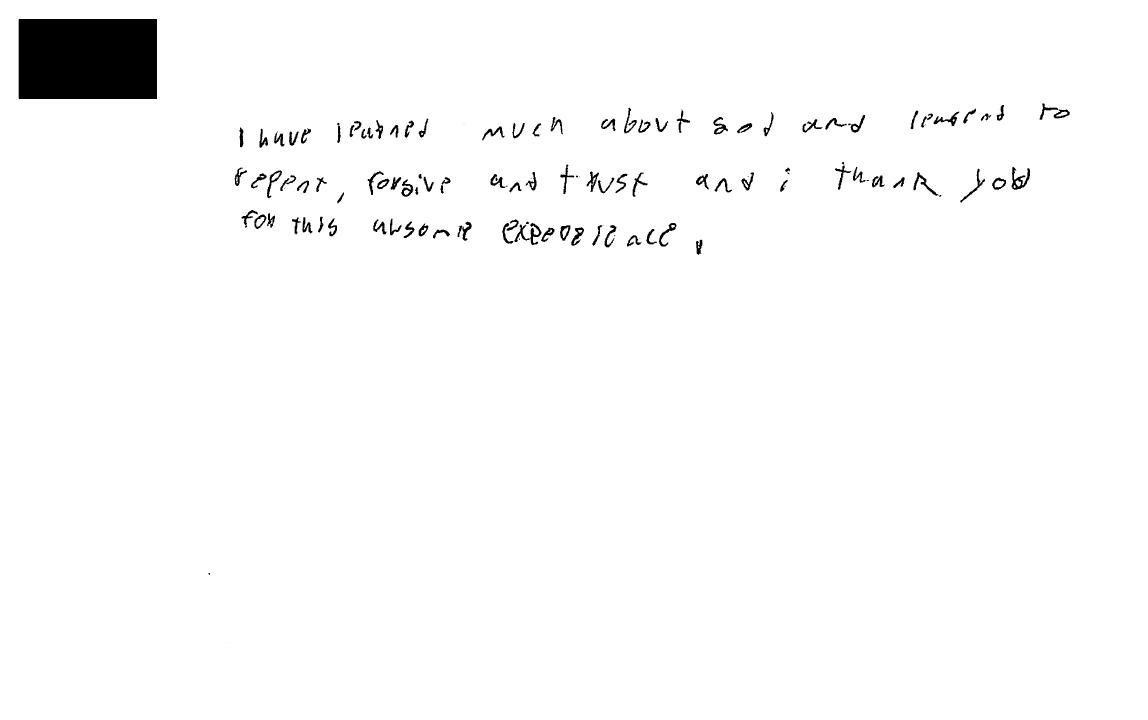 I have learned much about God and learend to
repent, forgive and trust and i thank you
for this absome experience.